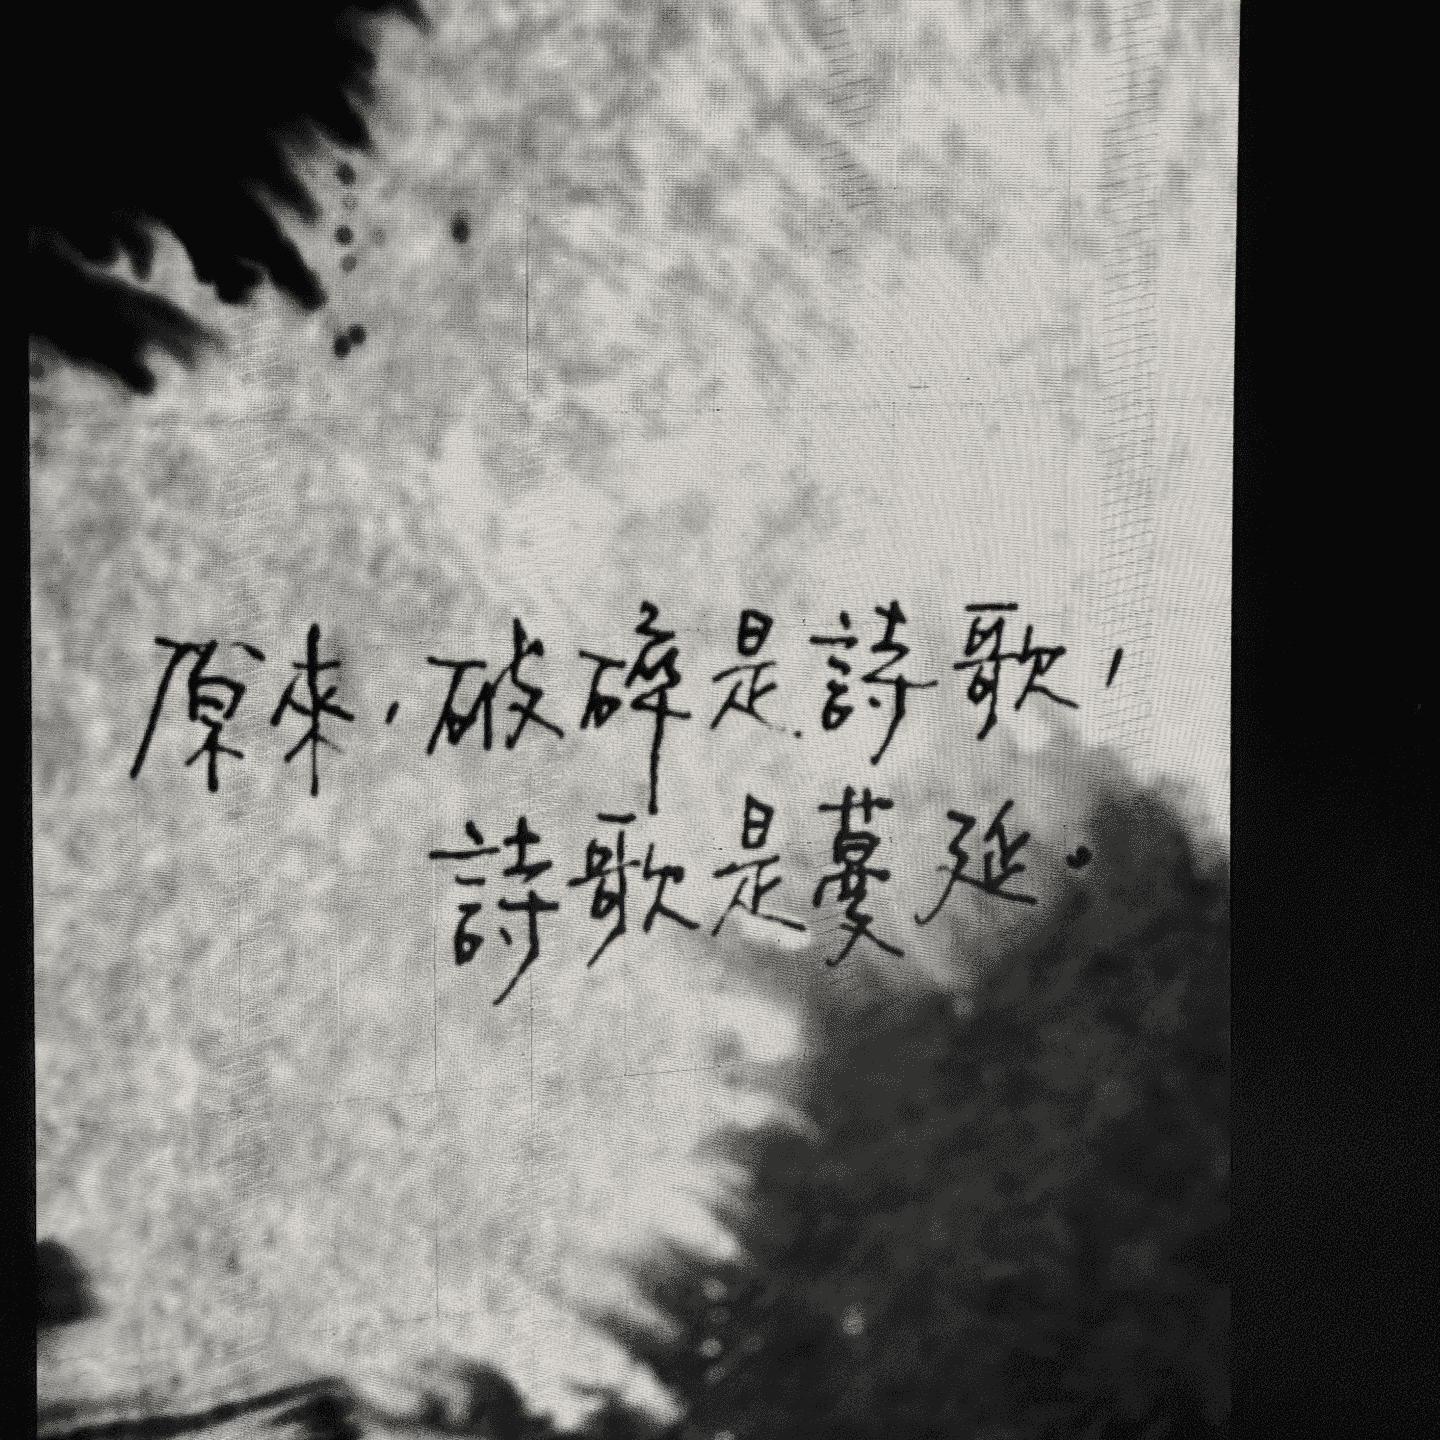 原來，破碎是詩歌，
詩歌是蔓延。